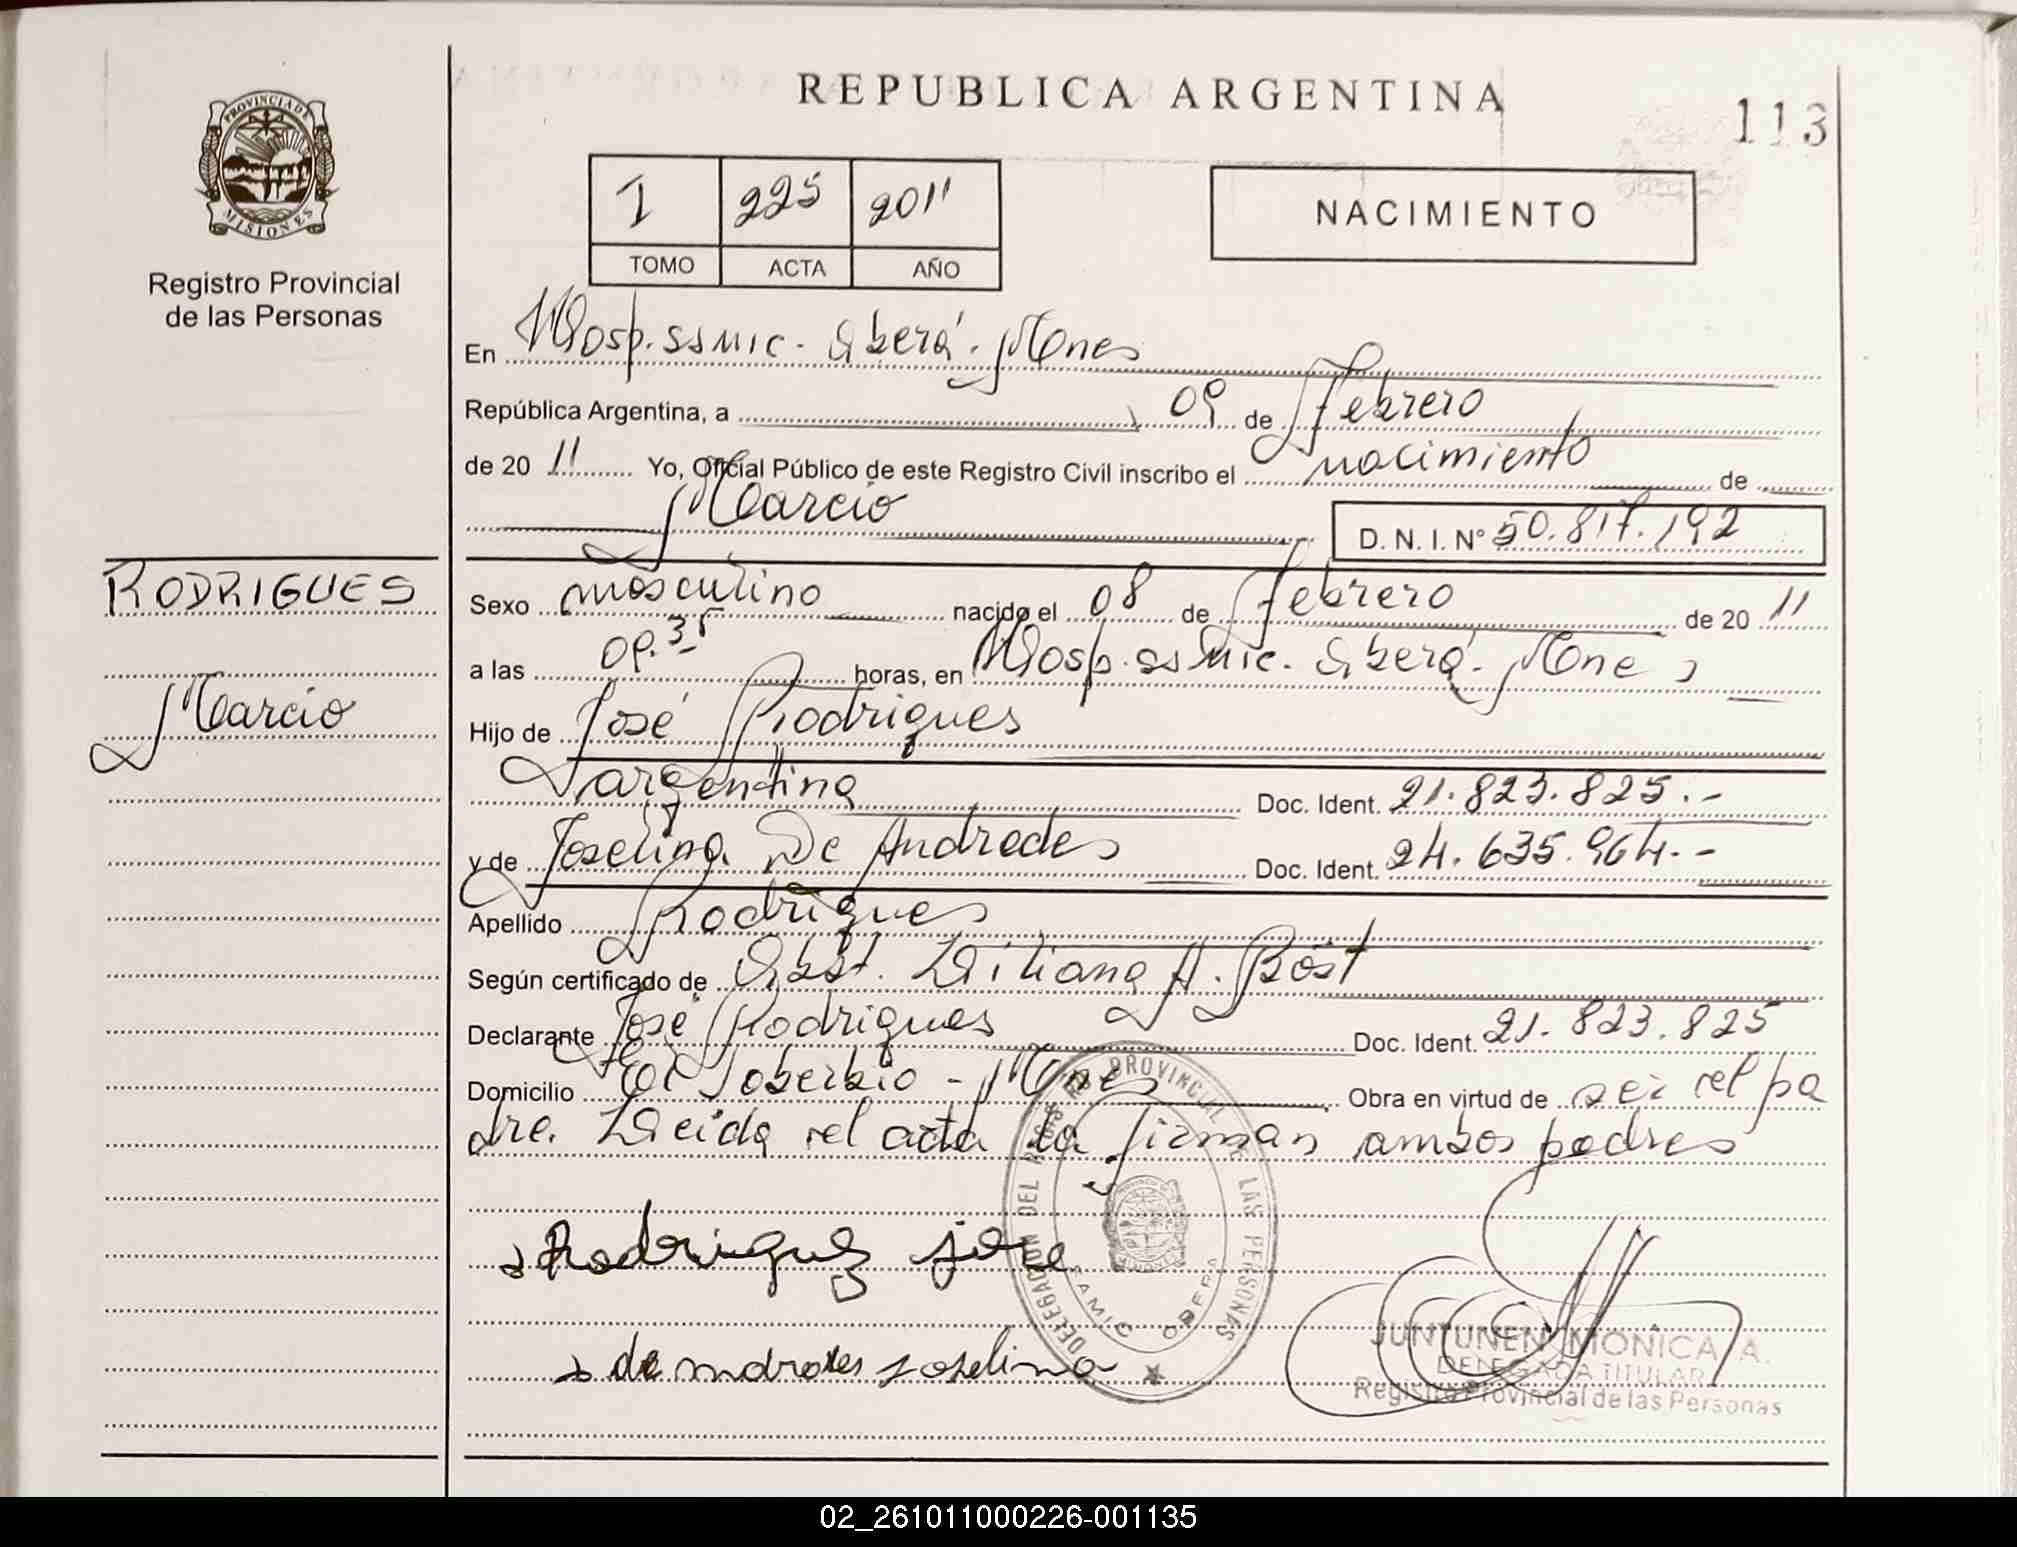 REPUBLICA ARGENTINA
113
PROVINCIA DE
MISIONES
Registro Provincial
de las Personas
I 225 2011
TOMO ACTA AÑO
NACIMIENTO
En Hosp. SSMIC. Oberá. Mones
República Argentina, a 09 de Febrero
de 20 11 Yo, Oficial Público de este Registro Civil inscribo el nacimiento de
Marcio D. N. I. Nº 50.817.192
RODRIGUES
Marcio
Sexo masculino nacido el 08 de Febrero de 20 11
a las 09.35 horas, en Hosp. SSMIC. Oberá. Mones
Hijo de José Rodrigues
argentina Doc. Ident. 21.823.825.-
y de Joselina De Andrades Doc. Ident. 24.635.964.-
Apellido Rodrigues
Según certificado de Obst. Liliana A. Bost
Declarante José Rodrigues Doc. Ident. 21.823.825
Domicilio El Soberbio - Mones Obra en virtud de ser el pa
dre. Leida el acta la firman ambos padres
Rodriguez jose
de andrades joselina
DELEGACION DEL REGISTRO PROVINCIAL DE LAS PERSONAS
SAMIC OBERA
JUNTUNEN MONICA A.
DELEGADA TITULAR
Registro Provincial de las Personas
02_261011000226-001135